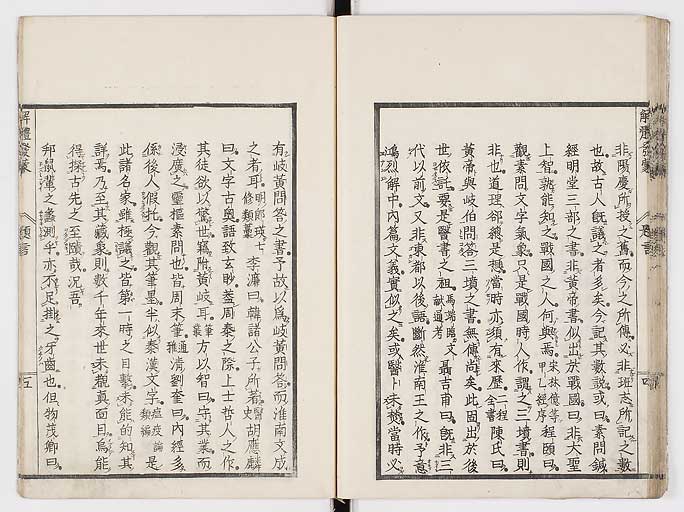 非陽慶所授之舊而今之所傳必非班志所記之數
也故古人既議之者多矣今記其數說或曰素問鍼
經明堂三部之書非黃帝書似出於戰國曰非大聖
上智孰能知之戰國之人何與焉宋林億等甲乙經序程頤曰
觀素問文字氣象只是戰國時人作謂之三墳書則
非也道理卻總是想當時亦須有來歷二程全書陳氏曰
黃帝與岐伯問答三墳之書無傳尚矣此固出於後
世依託要是醫書之祖馬端臨文獻通考聶吉甫曰既非三
代以前文又非東都以後語斷然淮南王之作予意
鴻烈解中內篇文義實似之矣或醫卜未焚當時必
解體發蒙
四
有岐黃問答之書予故以為岐黃問答而淮南文成
之者耳明郎瑛七修類藁李濂曰韓諸公子所著醫史胡應麟
曰文字古奧語致玄眇蓋周秦之際上士哲人之作
其徒欲以驚世竊附黃岐耳筆叢方以智曰守其業而
浸廣之靈樞素問也皆周末筆通雅清劉奎曰內經多
係後人假托今觀其筆墨半似秦漢文字瘟疫論類編是
此諸名家雖極議之皆第一時之目擊未能的知其
詳焉乃至其藏象則數千年來世未覩真面目烏能
得探古先之至賾哉況吾
邦鼠輩之蠡測乎亦不足掛之牙齒也但物茂卿曰
解體發蒙
五